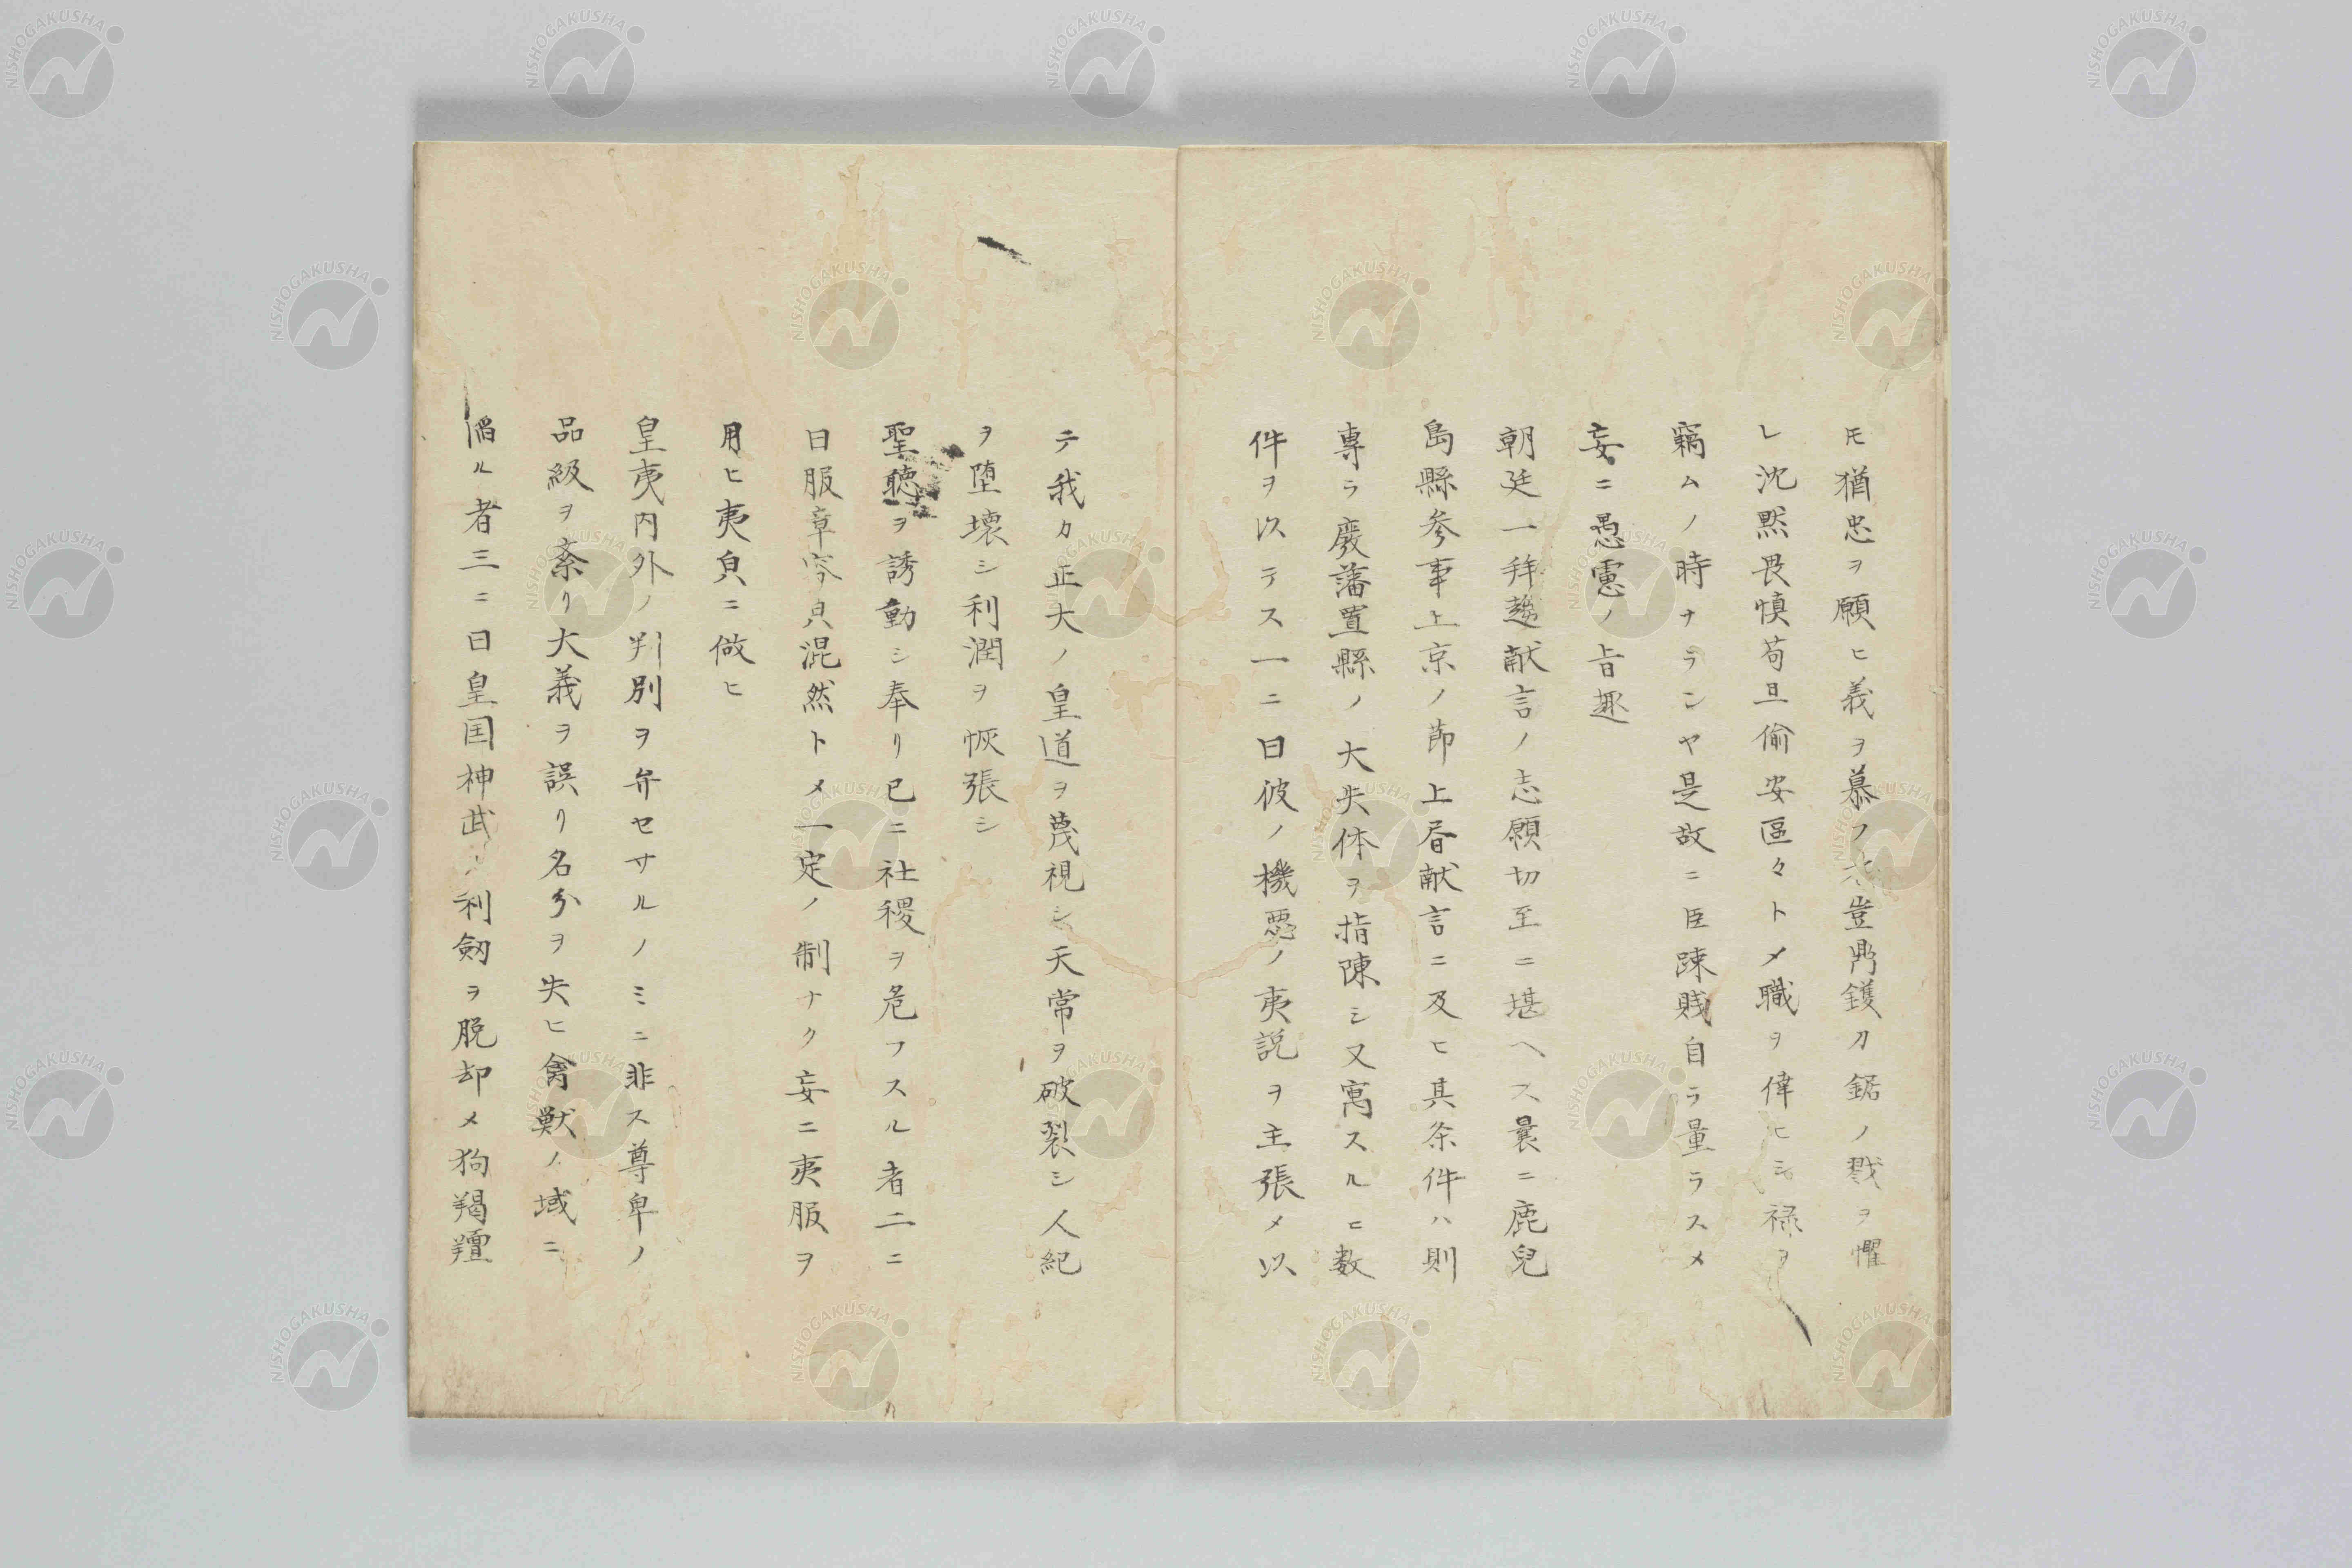 圧猶忠ヲ願ヒ義ヲ慕フ者豈鼎鑊刀鋸ノ戮ヲ懼
レ沈黙畏慎苟且偷安區々トメ職ヲ偉ヒシ禄ヲ
竊ムノ時ナランヤ是故ニ臣踈賤自ラ量ラスメ
妄ニ愚慮ノ旨趣
朝廷一拜趨献言ノ志願切至ニ堪ヘス曩ニ鹿兒
島縣参事上京ノ節上書献言ニ及ヒ其条件ハ則
専ラ廢藩置縣ノ大失体ヲ指陳シ又寓スルヒ数
件ヲ以テス一ニ曰彼ノ機悪ノ夷説ヲ主張メ以
テ我カ正大ノ皇道ヲ蔑視シ天常ヲ破裂シ人紀
ヲ堕壊シ利潤ヲ恢張シ
聖聴ヲ誘動シ奉リ已ニ社稷ヲ危フスル者二ニ
曰服章容皃混然トメ一定ノ制ナク妄ニ夷服ヲ
用ヒ夷皃ニ倣ヒ
皇夷内外ノ判別ヲ弁セサルノミニ非ス尊卑ノ
品級ヲ紊リ大義ヲ誤リ名分ヲ失ヒ禽獣ノ域ニ
陷ル者三ニ曰皇国神武ノ利劔ヲ脱却メ狗羯羶